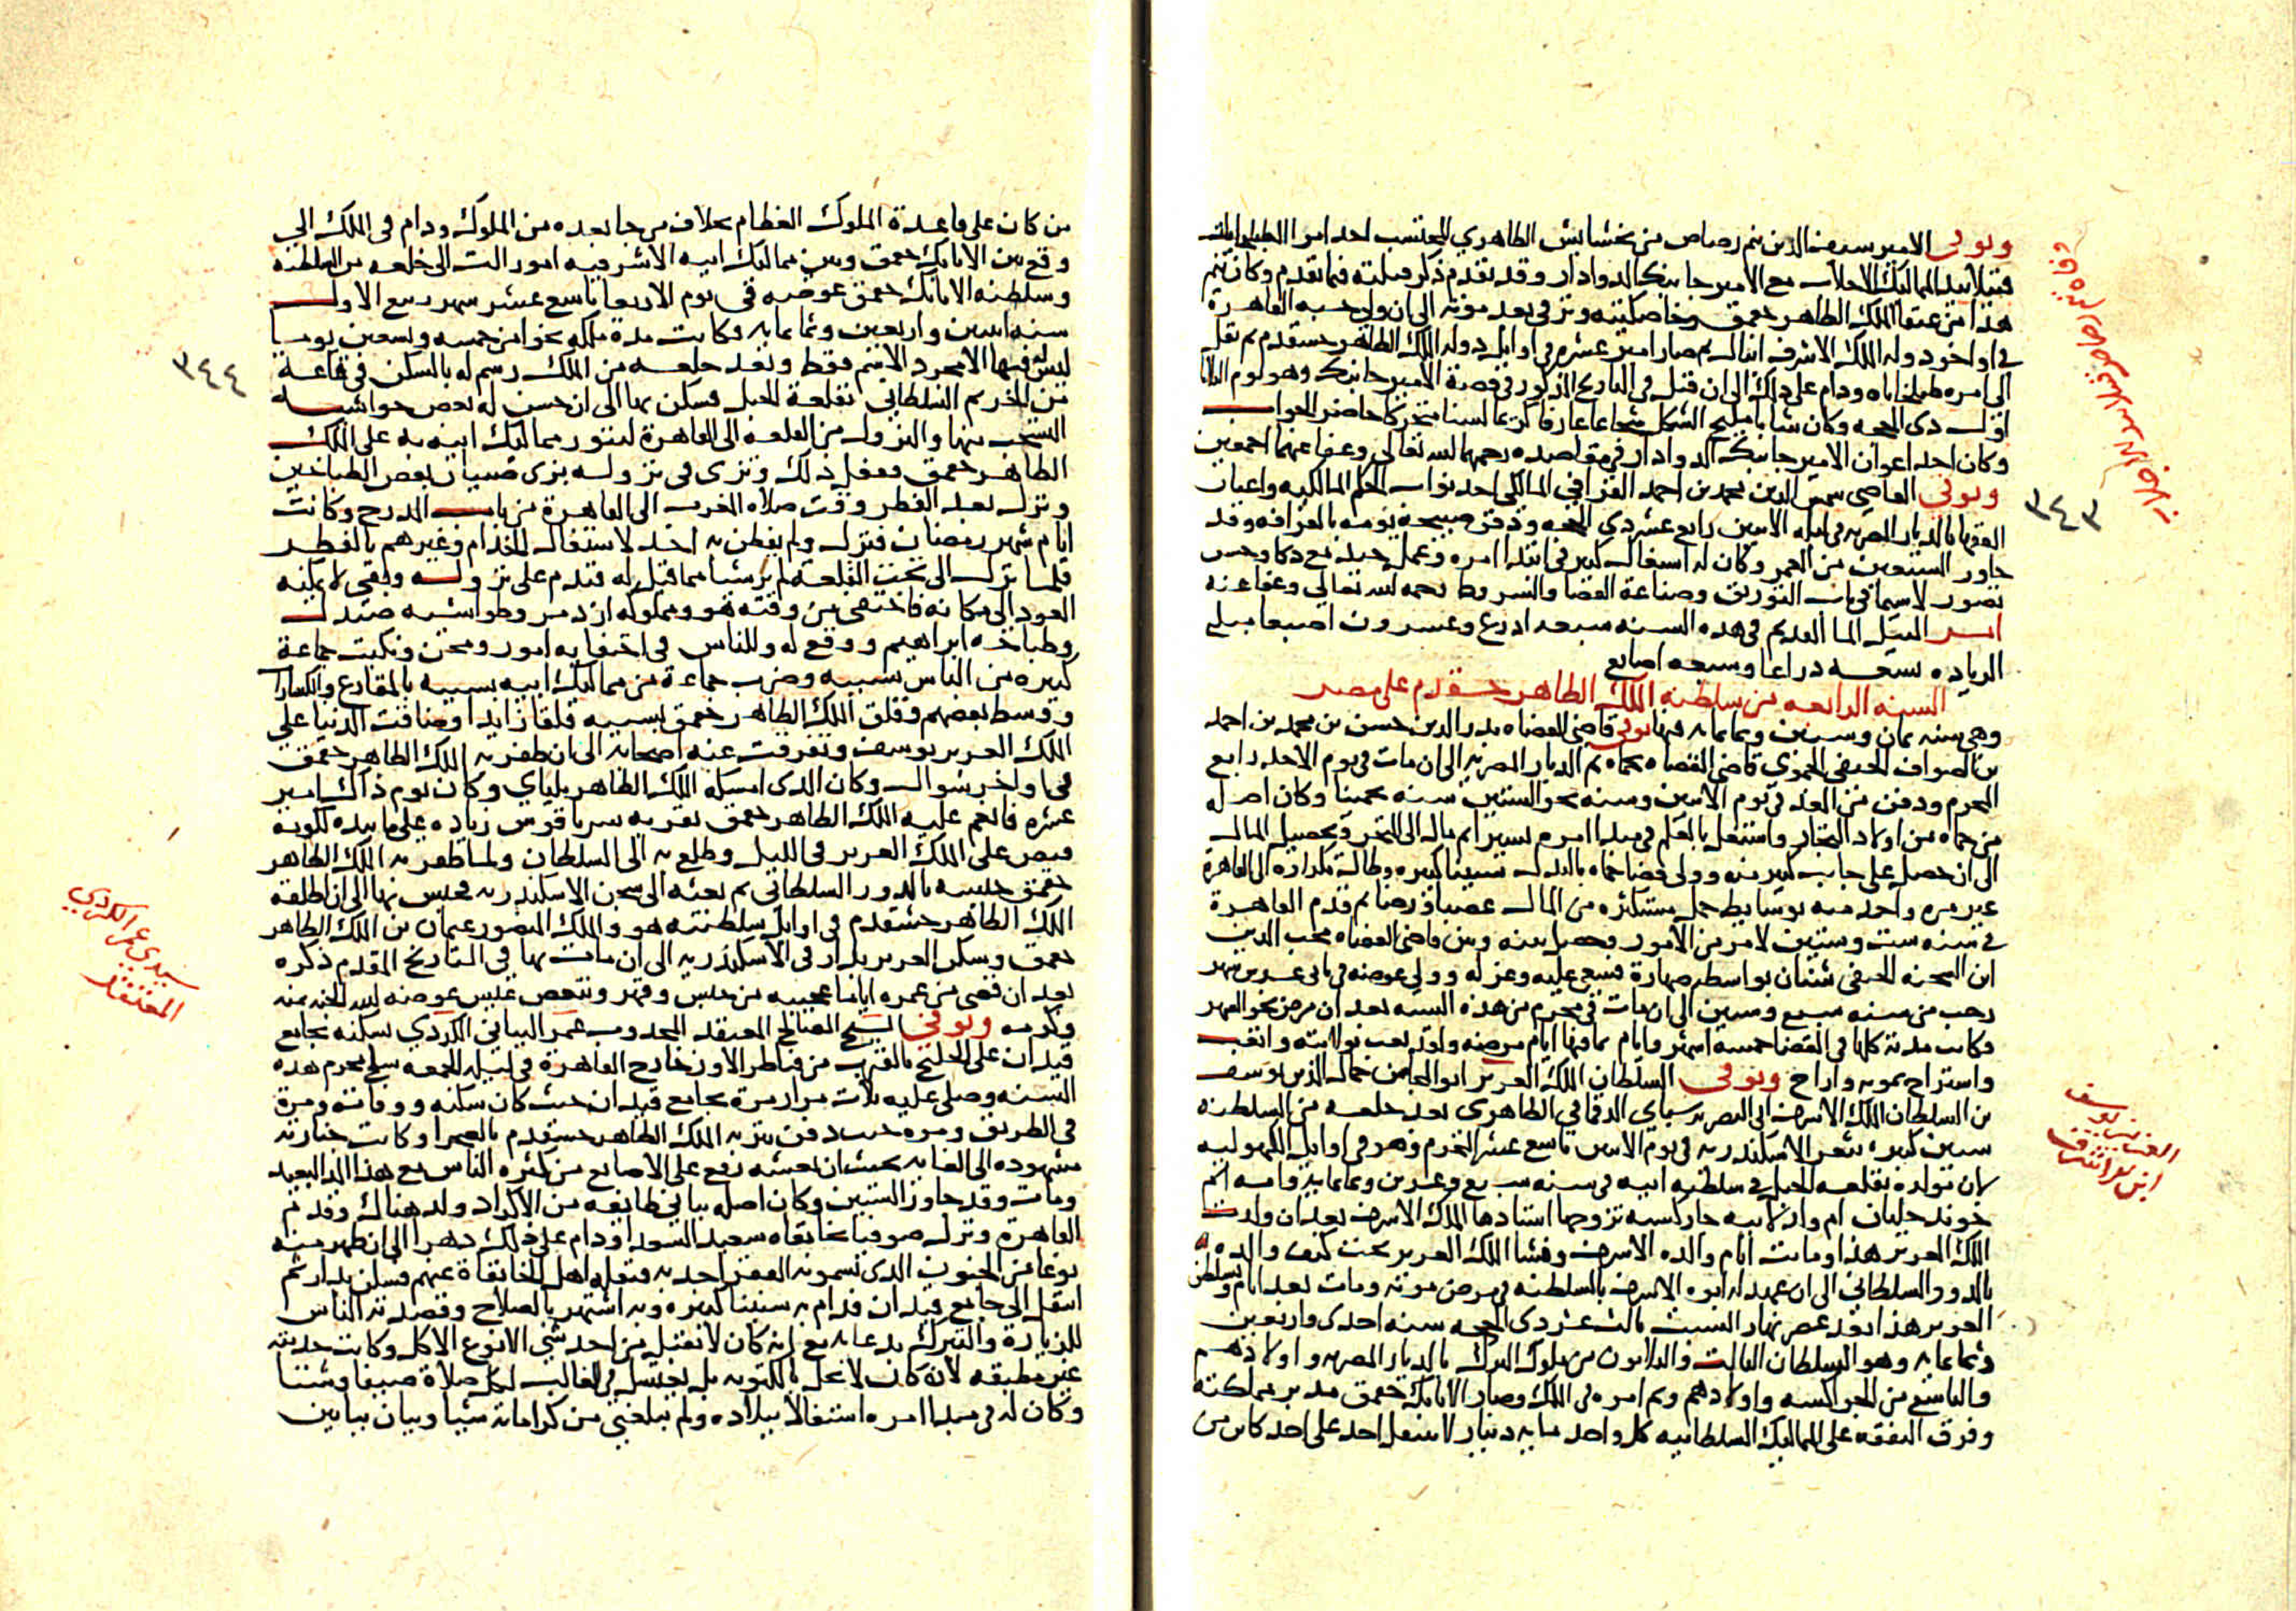 وتوفي الامير سيف الدين تنم رصاص من نخشايش الظاهري المحتسب احد امرا الطبلخانات
قتيلا بيد المماليك الاجلاب مع الامير جانبك الدوادار وقد تقدم ذكر قتلته فيما تقدم وكان تنم
هذا من عتقا الملك الظاهر جقمق وخاصكيته وترقى بعد موته الى ان ولي حسبه القاهرة
في اواخر دوله الملك الاشرف اينال ثم صار امير عشره في اوايل دوله الملك الظاهر خشقدم ثم نقل
الى امره طبلخاناه ودام على ذلك الى ان قتل في التاريخ المذكور في قصة الامير جانبك وهو يوم الثلاثا
اول ذي الحجه وكان شابا مليح الشكل شجاعا عارفا كريما لسنا متحركا حاضر الجواب
وكان احد اعوان الامير جانبك الدوادار في مقاصده رحمهما الله تعالى وعفا عنهما اجمعين
وتوفي القاضي شمس الدين محمد بن احمد القرافي المالكي احد نواب الحكم المالكيه واعيان
الفقها بالديار المصريه في ليله الاثنين رابع عشر ذي الحجه ودفن صبيحة يومه بالقرافه وقد
جاوز الستين من العمر وكان له اشتغال كبير في ابتدا امره وعمل جيد مع ذكا وحسن
تصور لا سيما في باب التوريق وصناعة القضا والشروط رحمه الله تعالى وعفا عنه
امر النيل الما القديم في هذه السنه سبعه اذرع وعشرون اصبعا مبلغ
الزياده سبعه ذراعا وسبعه اصابع
السنه الرابعه من سلطنه الملك الظاهر خشقدم على مصر
وهي سنه ثمان وستين وثمانمايه فيها توفي قاضي القضاه بدر الدين حسن بن محمد بن احمد
بن الصواف الحنفي الحموي قاضي القضاه بحماه ثم الديار المصريه الى ان مات في يوم الاحد رابع
المحرم ودفن من الغد في يوم الاثنين وسنه نحو الستين سنه تخمينا وكان اصله
من حماه من اولاد التجار واشتغل بالعلم في مبدا امره يسيرا ثم مال الى المتجر وتحصيل المال
الى ان حصل على جانب كبير منه وولى قضا حماه بالبذل سنينا كثيره وطالت تكراره الى القاهره
غير مره واخذ منه بوسايط جمل مستكثره من المال غصبا ورضا ثم قدم القاهرة
في سنه ست وستين لامر من الامور فحصل بينه وبين قاضي القضاه محب الدين
ابن الشحنه الحنفي شنان بواسطه صهارة فسعى عليه وعزله وولي عوضه في ثاني عشرين شهر
رجب من سنه سبع وستين الى ان مات في محرم من هذه السنه بعد ان مرض نحو الشهر
فكانت مدته كلها في القضا خمسه اشهر وايام بما فيها ايام مرضه ولقد تعب بولايته واتعب
واستراح بموته واراح وتوفي السلطان الملك العزيز ابو المحاسن جمال الدين يوسف
بن السلطان الملك الاشرف ابي النصر برسباي الدقماقي الظاهري بعد خلعه من السلطنه
سنين كثيره بثغر الاسكندريه في يوم الاثنين تاسع عشر المحرم وهو في اوايل الكهوليه
لان مولده بقلعه الجبل في سلطنه ابيه في سنه سبع وعشرين وثمانمايه وامه ام
خوند جلبان ام ولد لابيه جاركسيه تزوجها استادها الملك الاشرف بعد ان ولدت
الملك العزيز هذا وماتت ايام والده الاشرف ونشا الملك العزيز تحت كنف والده
بالدور السلطاني الى ان عهد له ابوه الاشرف بالسلطنه في مرض موته ومات بعد ايام وتسلطن
العزيز هذا بعد عصر نهار السبت ثالث عشر ذي الحجه سنه احدى واربعين
وثمانمايه وهو السلطان الثالث والثلاثون من ملوك الترك بالديار المصريه واولادهم
والتاسع من الجراكسه واولادهم وتم امره في الملك وصار الاتابك جقمق مدبر مملكته
وفرق النفقه على المماليك السلطانيه كل واحد مايه دينار لا يفضل احد على احد كاين من
وفاة
٣٤٣
العزيز يوسف
ابن الاشرف
من كان على قاعدة الملوك العظام بخلاف من جا بعده من الملوك ودام في الملك الى
وقع بين الاتابك جقمق وبين مماليك ابيه الاشرفيه امور الت الى خلعه من السلطنه
وسلطنه الاتابك جقمق عوضه في يوم الاربعا تاسع عشر شهر ربيع الاول
سنه اثنين واربعين وثمانمايه وكانت مدة ملكه نحوا من خمسه وتسعين يوما
ليس له فيها الا مجرد الاسم فقط وبعد خلعه من الملك رسم له بالسكن في قاعة
من الحريم السلطاني بقلعة الجبل فسكن بها الى ان حسن له بعض حواشيه
التسحب منها والنزول من القلعه الى القاهرة ليثور مماليك ابيه به على الملك
الظاهر جقمق ففعل ذلك وتزى في نزوله بزي صبيان بعض الطباخين
ونزل بعد الفطر وقت صلاه المغرب الى القاهرة من باب المدرج وكانت
ايام شهر رمضان فنزل ولم يفطن به احد لاشتغال الخدام وغيرهم بالفطر
فلما نزل الى تحت القلعه لم ير شيا مما قيل له فندم على نزوله وبقي لا يمكنه
العود الى مكانه فاختفى من وقته هو ومملوكه ازدمر وطواشيه صندل
وطباخه ابراهيم ووقع له وللناس في اختفايه امور ومحن ونكبت جماعة
كثيره من الناس بسببه وضرب جماعة من مماليك ابيه بسببه بالمقارع والكسارا
ووسط بعضهم وقلق الملك الظاهر جقمق بسببه قلقا زايدا وضاقت الدنيا على
الملك العزيز يوسف وتفرقت عنه اصحابه الى ان ظفر به الملك الظاهر جقمق
في اواخر شوال وكان الذي امسكه الملك الظاهر يلباي وكان يوم ذاك امير
عشره فانعم عليه الملك الظاهر جقمق بقريه سرياقوس زياده على ما بيده لكونه
قبض على الملك العزيز في الليل وطلع به الى السلطان ولما ظفر به الملك الظاهر
جقمق حبسه بالدور السلطاني ثم بعثه الى سجن الاسكندريه فحبس بها الى ان اطلقه
الملك الظاهر خشقدم في اوايل سلطنته هو والملك المنصور عثمان بن الملك الظاهر
جقمق وسكن العزيز بدار في الاسكندريه الى ان مات بها في التاريخ المقدم ذكره
بعد ان قضى من عمره اياما عجيبه من حبس وقهر وتنغص عيش عوضه الله الجنه بمنه
وكرمه وتوفي الشيخ الصالح المعتقد المجدوب عمر البباني الكردي لسكنه بجامع
قيدان على الخليج بالقرب من قناطر الاوز خارج القاهرة في ليله الجمعه سلخ محرم هذه
السنه وصلي عليه ثلاث مرار مرة بجامع قيدان حيث كان سكنه ووفاته ومرة
في الطريق ومره حيث دفن بتربه الملك الظاهر خشقدم بالصحرا وكانت جنازته
مشهوده الى الغايه بحيث ان نعشه رفع على الاصابع من كثره الناس مع هذا المدا البعيد
ومات وقد جاوز الستين وكان اصله بباني طايفه من الاكراد ولد هناك وقدم
القاهرة ونزل صوفيا بخانقاه سعيد السعدا ودام على ذلك دهرا الى ان ظهر منه
نوعا من الجنون الذي تسمونه الفقرا جذبه فنقله اهل الخانقاة عنهم فسكن بدار ثم
انتقل الى جامع قيدان فدام به سنينا كثيره وبه اشتهر بالصلاح وقصدته الناس
للزيارة والتبرك بدعايه مع انه كان لا يقبل من احد شي الا نوع الاكل وكانت جذبته
غير مطبقه لانه كان لا يخل بالمكتوبه بل يغتسل في الغالب لكل صلاة صيفا وشتا
وكان له في مبدا امره اشتغالا ببلاده ولم يبلغني من كراماته شيا وبيان ببابين
٣٤٤
سيدي عمر الكردي
المعتقد